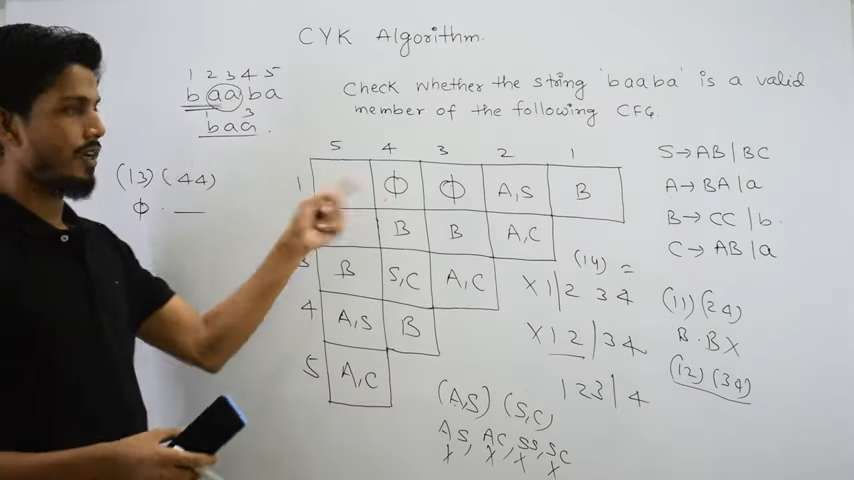 CYK Algorithm.
1 2 3 4 5
b a a b a
1 3
b a a .
Check whether the string 'baaba' is a valid
member of the following CFG.
(13) (44)
ϕ . —
5 4 3 2 1
1 ϕ ϕ A,S B
B B A,C
3 B S,C A,C
4 A,S B
5 A,C
S→AB|BC
A→BA|a
B→CC|b
C→AB|a
(14) =
X 1|2 3 4
X 1 2|3 4
1 2 3|4
(11) (24)
B . B X
(12) (34)
(A,S) (S,C)
AS, AC, SS, SC
X X X X